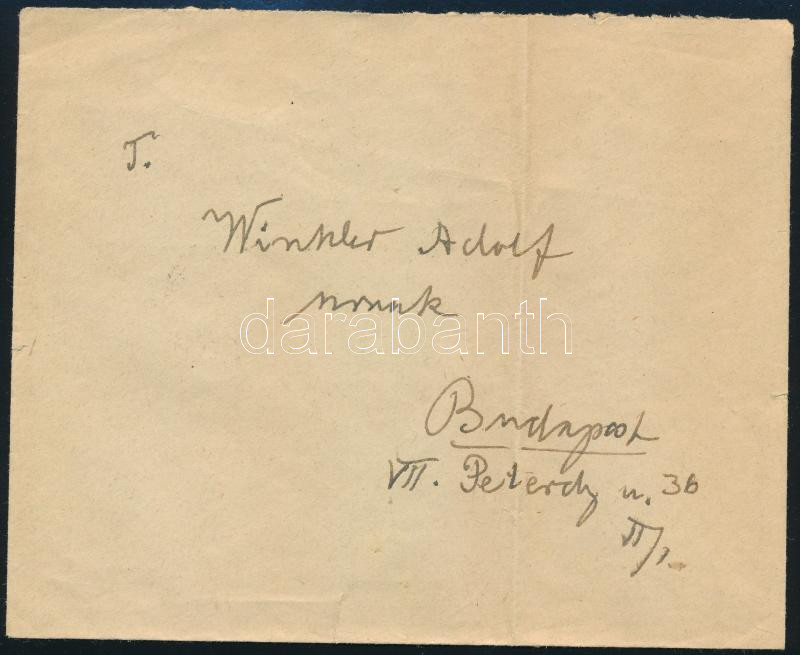 T.
Winkler Adolf
urnak
darabanth
Budapest
VII. Peterdy u. 36
II/1.